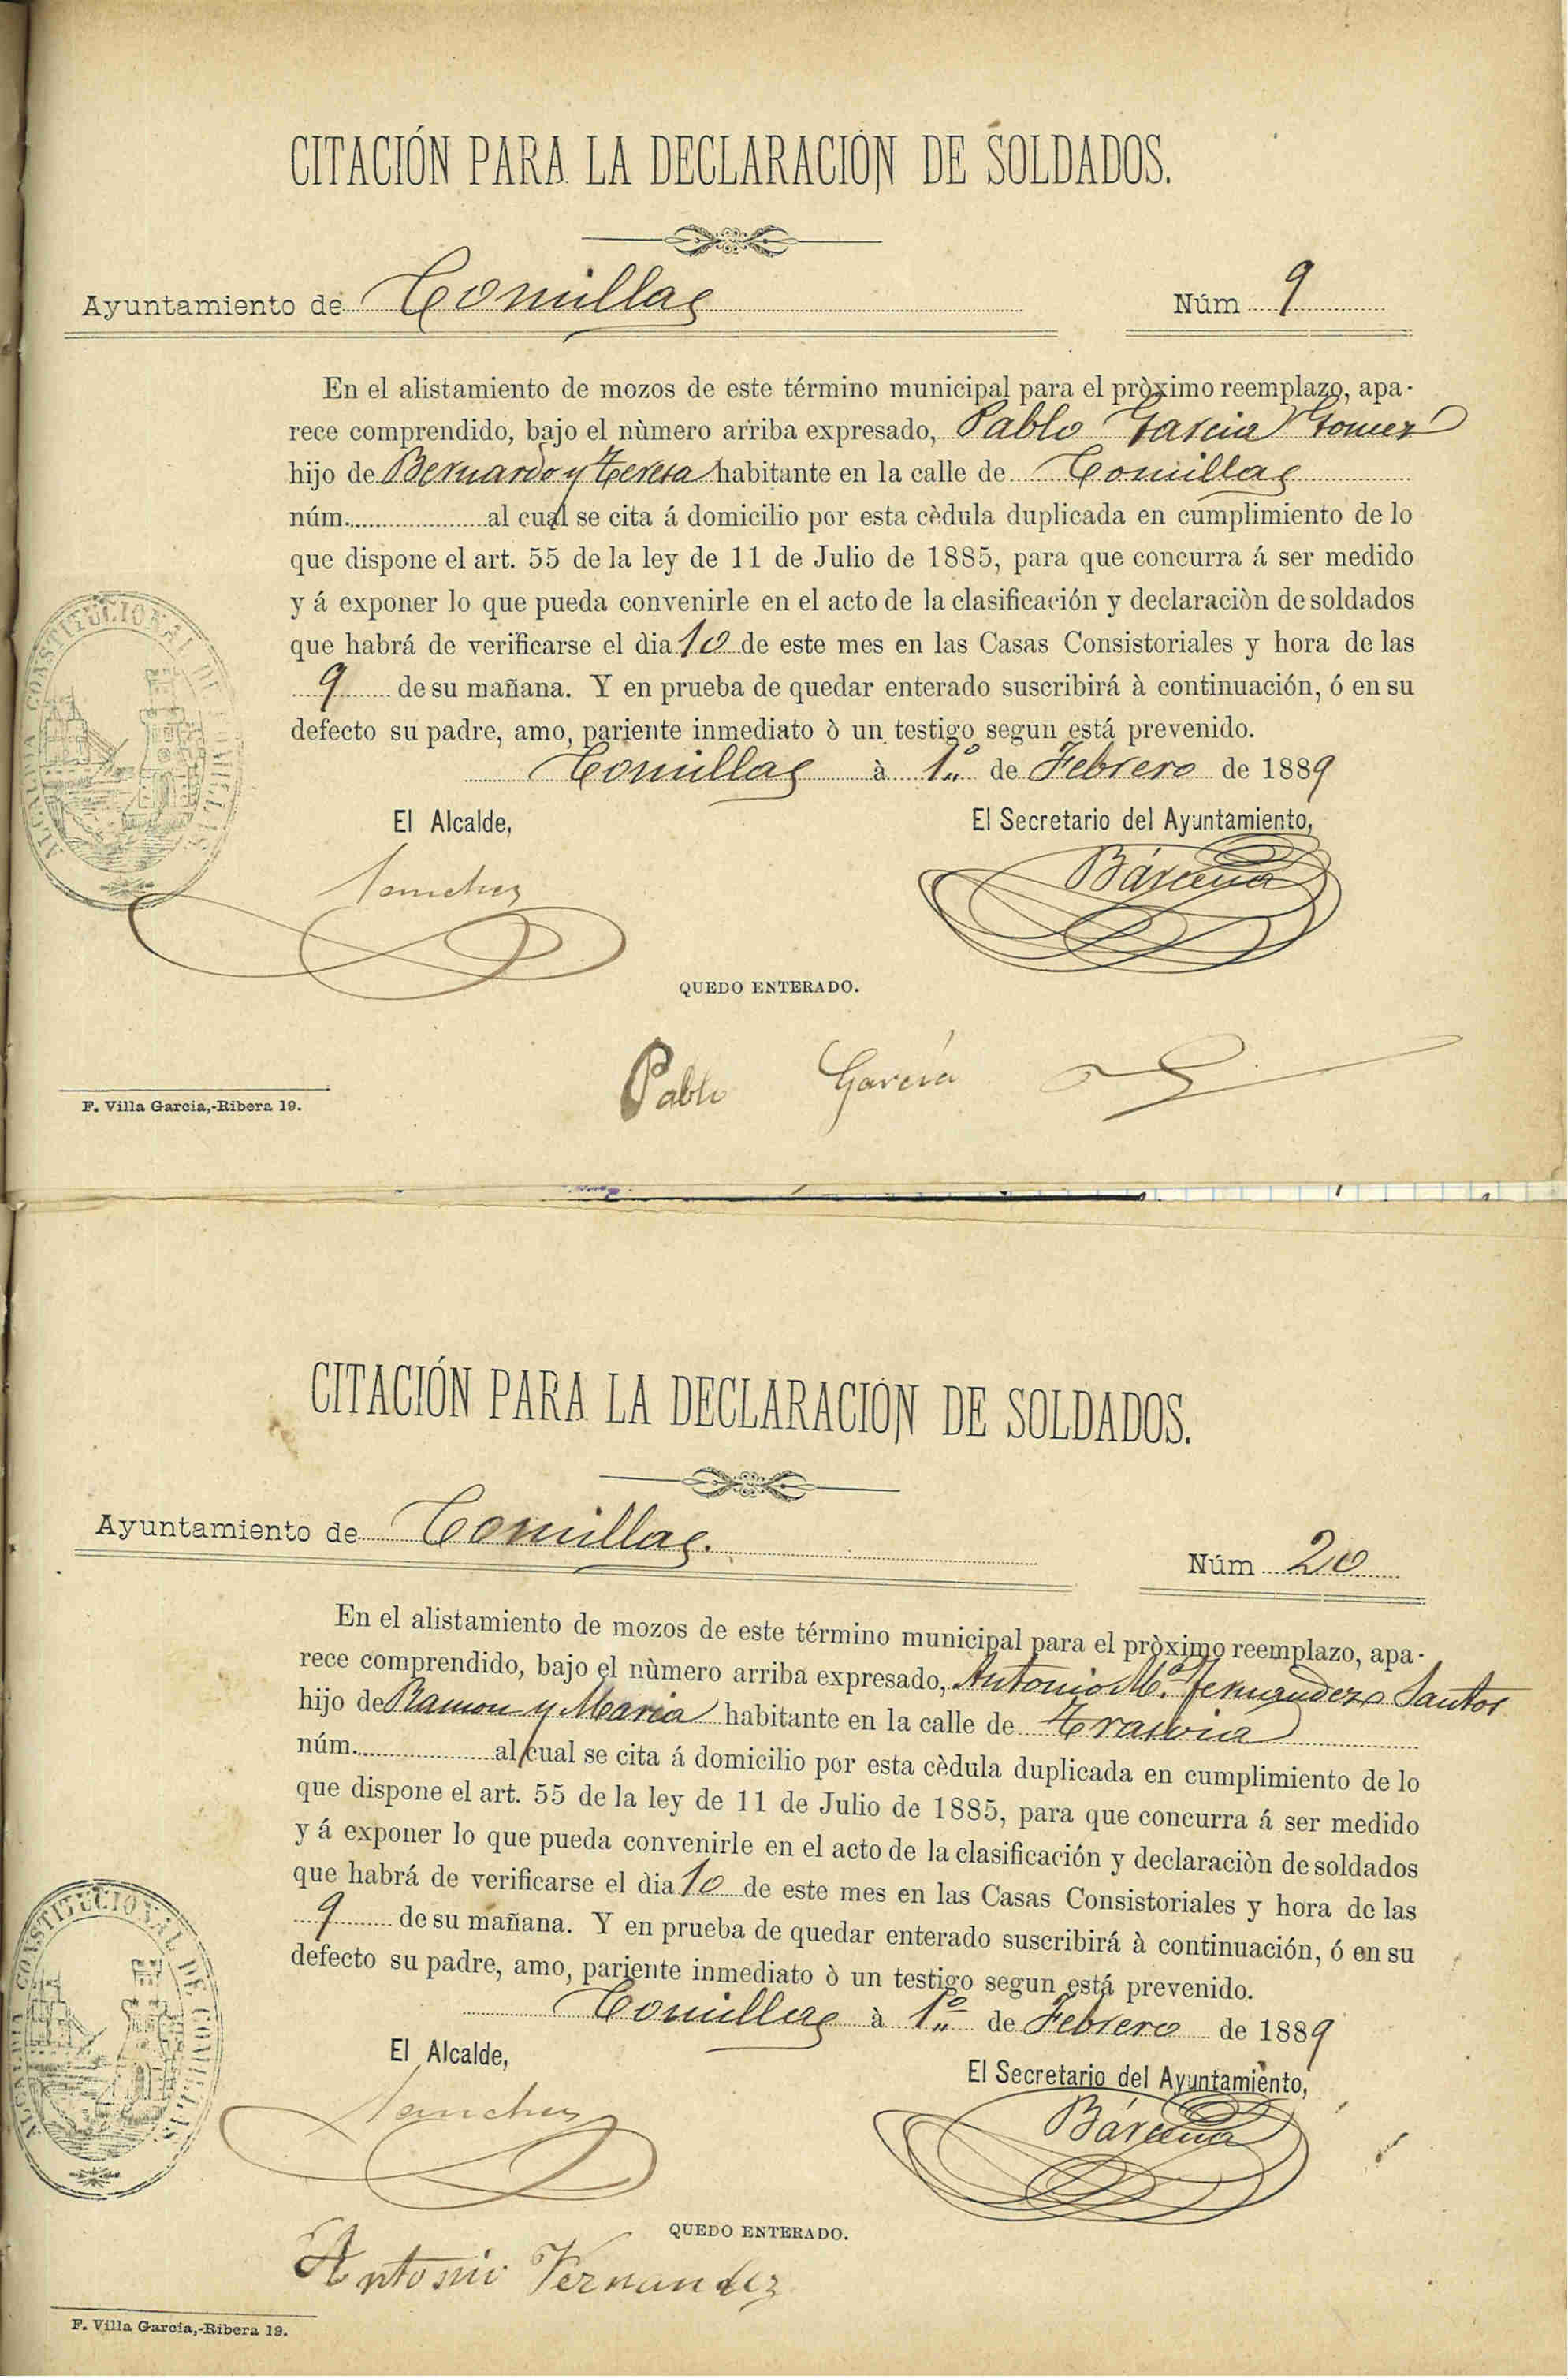 CITACIÓN PARA LA DECLARACIÓN DE SOLDADOS.
Ayuntamiento de Comillas Núm 9
En el alistamiento de mozos de este término municipal para el pròximo reemplazo, apa-
rece comprendido, bajo el nùmero arriba expresado, Pablo Garcia Gomez
hijo de Bernardo y Teresa habitante en la calle de Comillas
núm. al cual se cita á domicilio por esta cèdula duplicada en cumplimiento de lo
que dispone el art. 55 de la ley de 11 de Julio de 1885, para que concurra á ser medido
y á exponer lo que pueda convenirle en el acto de la clasificación y declaraciòn de soldados
que habrá de verificarse el dia 10 de este mes en las Casas Consistoriales y hora de las
9 de su mañana. Y en prueba de quedar enterado suscribirá à continuación, ó en su
defecto su padre, amo, pariente inmediato ò un testigo segun está prevenido.
Comillas à 1.º de Febrero de 1889
El Alcalde, El Secretario del Ayuntamiento,
Sanchez Bárcena
QUEDO ENTERADO.
Pablo García
F. Villa Garcia,-Ribera 19.
CITACIÓN PARA LA DECLARACIÓN DE SOLDADOS.
Ayuntamiento de Comillas. Núm 20
En el alistamiento de mozos de este término municipal para el pròximo reemplazo, apa-
rece comprendido, bajo el nùmero arriba expresado, Antonio M.ª Fernandez Santos
hijo de Ramon y Maria habitante en la calle de Trasvia
núm. al cual se cita á domicilio por esta cèdula duplicada en cumplimiento de lo
que dispone el art. 55 de la ley de 11 de Julio de 1885, para que concurra á ser medido
y á exponer lo que pueda convenirle en el acto de la clasificación y declaraciòn de soldados
que habrá de verificarse el dia 10 de este mes en las Casas Consistoriales y hora de las
9 de su mañana. Y en prueba de quedar enterado suscribirá à continuación, ó en su
defecto su padre, amo, pariente inmediato ò un testigo segun está prevenido.
Comillas à 1.º de Febrero de 1889
El Alcalde, El Secretario del Ayuntamiento,
Sanchez Bárcena
QUEDO ENTERADO.
Antonio Fernandez
F. Villa Garcia,-Ribera 19.